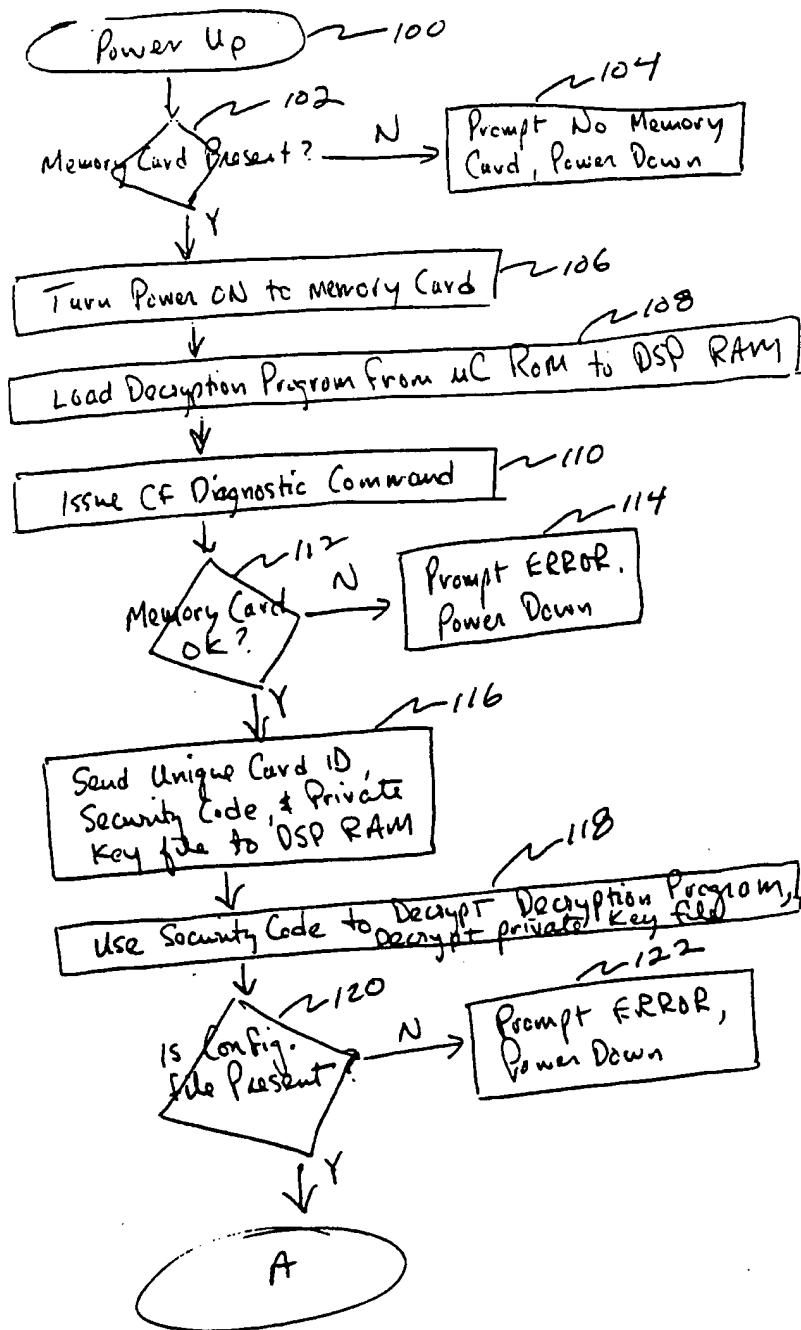 Power Up
100
102
104
Memory Card Present?
N
Prompt No Memory
Card, Power Down
Y
106
Turn Power ON to Memory Card
108
Load Decryption Program From uC ROM to DSP RAM
110
Issue CF Diagnostic Command
112
114
Memory Card
OK?
N
Prompt ERROR.
Power Down
Y
116
Send Unique Card ID,
Security Code, & Private
Key file to DSP RAM
118
Use Security Code to Decrypt Decryption Program,
Decrypt private Key file
120
122
Is Config.
file Present?
N
Prompt ERROR,
Power Down
Y
A